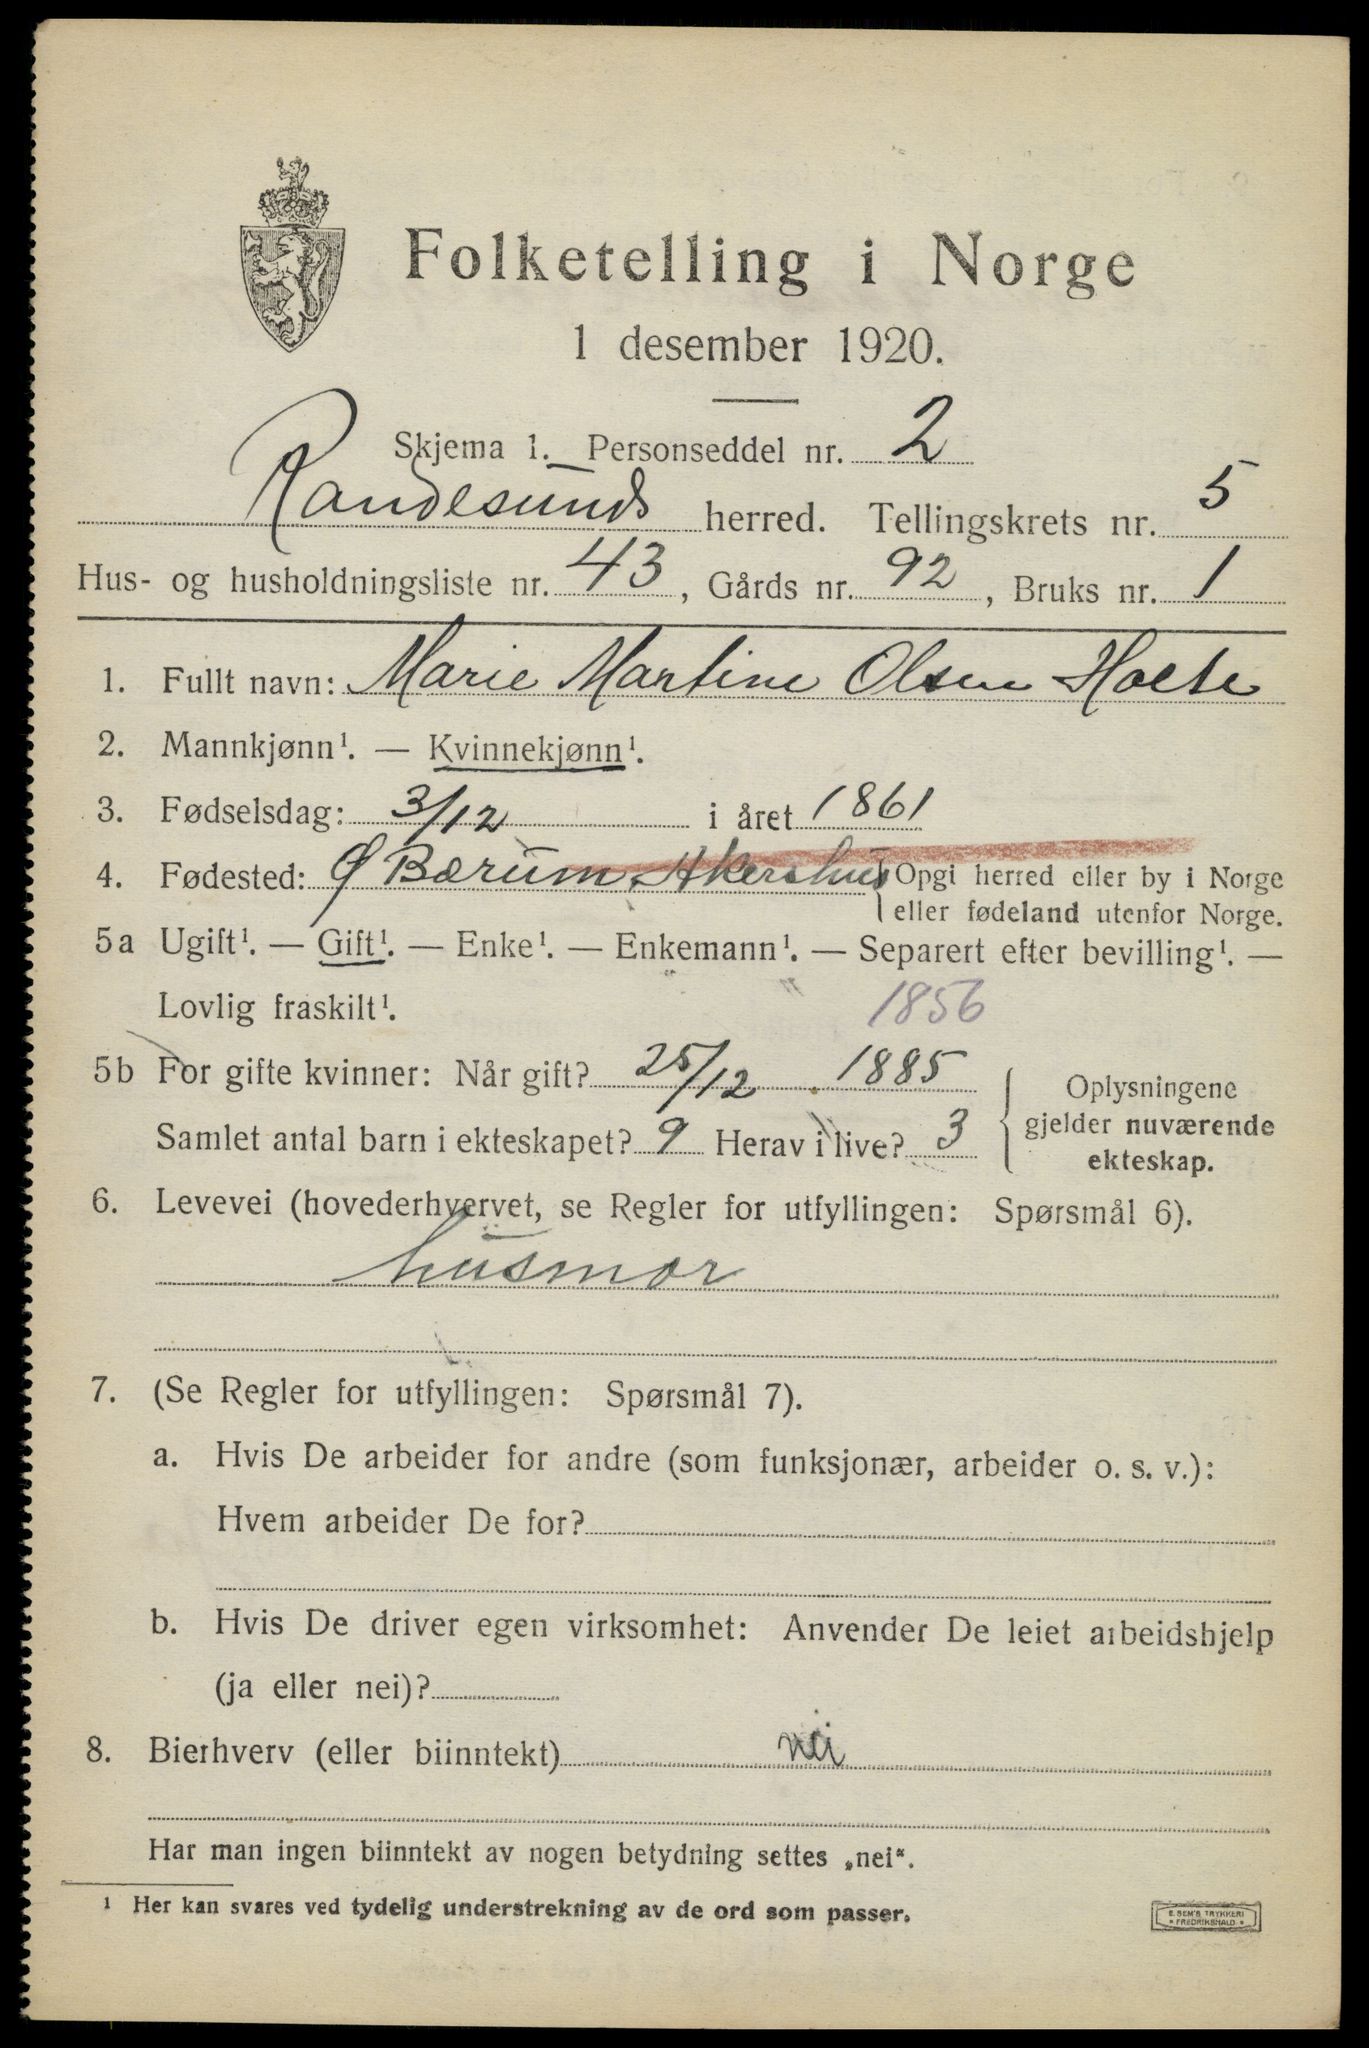 Folketelling i Norge
1 desember 1920.
Skjema 1. Personseddel nr. 2
Randesunds herred. Tellingskrets nr. 5
Hus- og husholdningsliste nr. 43, Gårds nr. 92, Bruks nr. 1
1. Fullt navn: Marie Martine Olsen Holte
2. Mannkjønn¹. — Kvinnekjønn¹.
3. Fødselsdag: 3/12 i året 1861
4. Fødested: Ø Bærum, Akershus { Opgi herred eller by i Norge
eller fødeland utenfor Norge.
5a Ugift¹. — Gift¹. — Enke¹. — Enkemann¹. — Separert efter bevilling¹. —
Lovlig fraskilt¹.
1856
5b For gifte kvinner: Når gift? 25/12 1885
Samlet antal barn i ekteskapet? 9 Herav i live? 3
{ Oplysningene
gjelder nuværende
ekteskap.
6. Levevei (hovederhvervet, se Regler for utfyllingen: Spørsmål 6).
husmor
7. (Se Regler for utfyllingen: Spørsmål 7).
a. Hvis De arbeider for andre (som funksjonær, arbeider o. s. v.):
Hvem arbeider De for?
b. Hvis De driver egen virksomhet: Anvender De leiet arbeidshjelp
(ja eller nei)?
8. Bierhverv (eller biinntekt) nei
Har man ingen biinntekt av nogen betydning settes „nei".
¹ Her kan svares ved tydelig understrekning av de ord som passer.
E. SEM'S TRYKKERI
* FREDRIKSHALD *